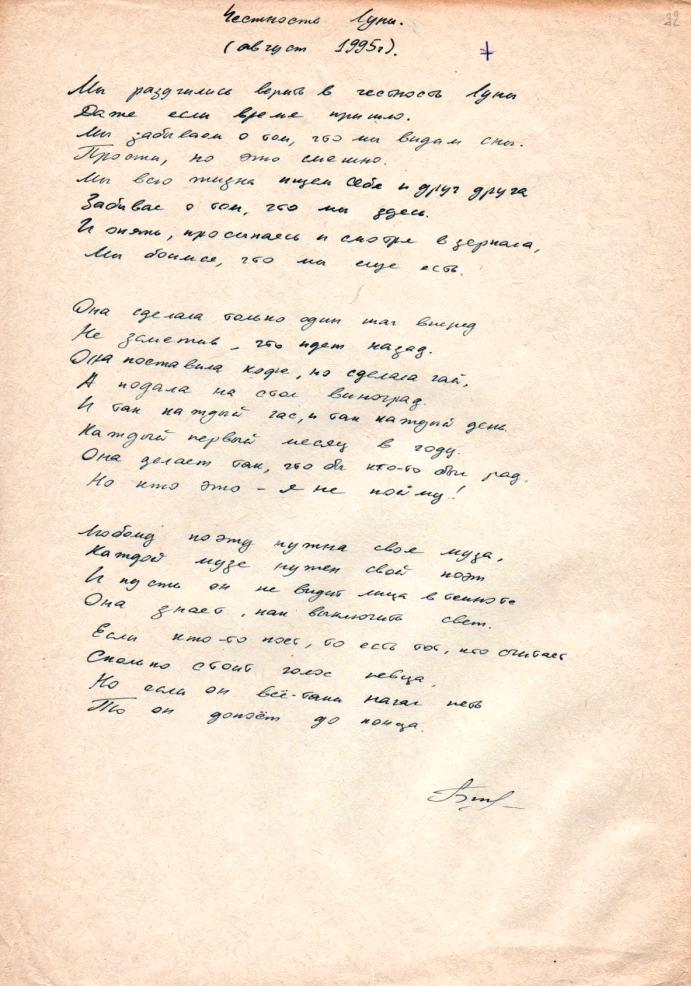 22
Честность Луны.
(август 1995г).
Мы разучились верить в честность Луны
Даже если время пришло.
Мы забываем о том, что мы видим сны.
Прости, но это смешно.
Мы всю жизнь ищем себя и друг друга
Забывая о том, что мы здесь.
И опять, просыпаясь и смотря в зеркала,
Мы боимся, что мы еще есть.
Она сделала только один шаг вперед
Не заметив, что идет назад.
Она поставила кофе, но сделала чай,
А подала на стол виноград.
И так каждый час, и так каждый день.
Каждый первый месяц в году.
Она делает так, что бы кто-то был рад.
Но кто это - я не пойму!
Любому поэту нужна своя муза,
Каждой музе нужен свой поэт
И пусть он не видит лица в темноте
Она знает, как выключить свет.
Если кто-то поет, то есть тот, кто считает
Сколько стоит голос певца,
Но если он всё-таки начал петь
То он допоёт до конца.